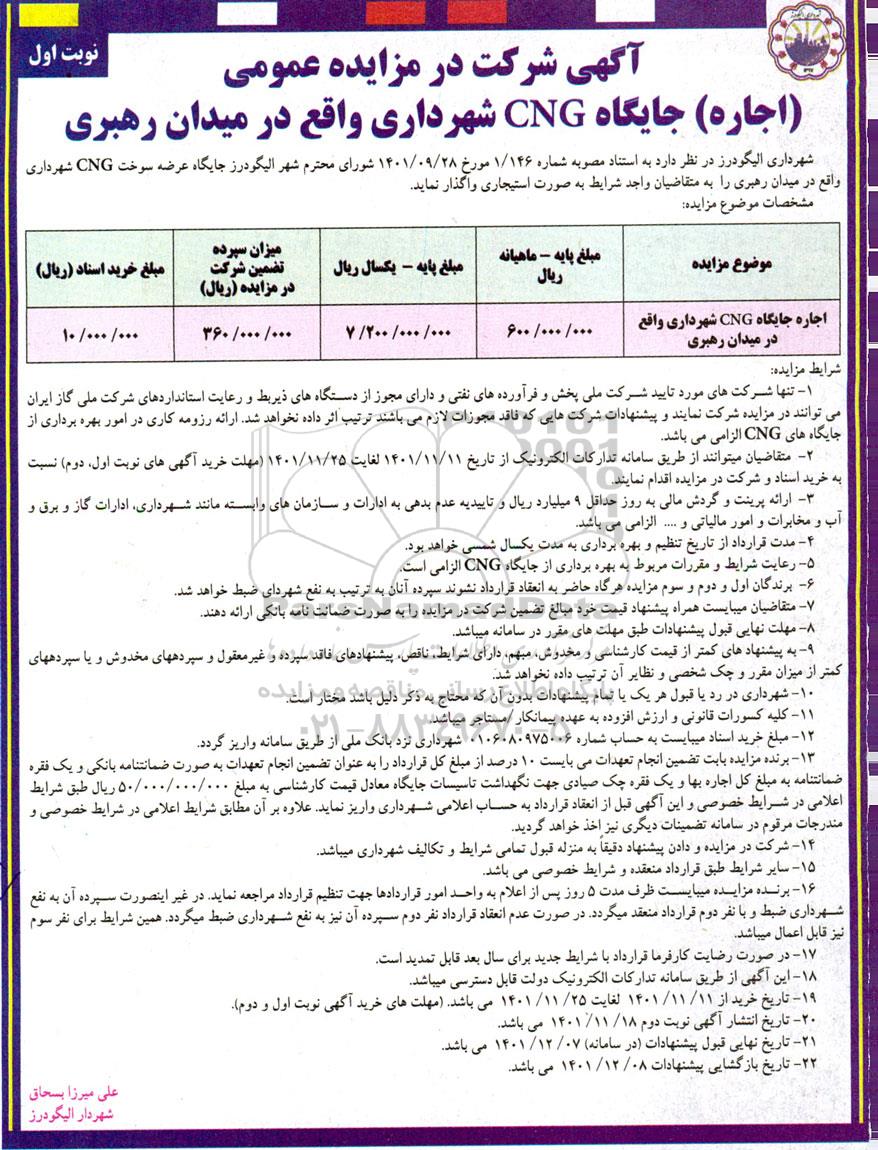 نوبت اول
آگهی شرکت در مزایده عمومی
(اجاره) جایگاه CNG شهرداری واقع در میدان رهبری
شهرداری الیگودرز در نظر دارد به استناد مصوبه شماره ۱/۱۴۶ مورخ ۱۴۰۱/۰۹/۲۸ شورای محترم شهر الیگودرز جایگاه عرضه سوخت CNG شهرداری
واقع در میدان رهبری را به متقاضیان واجد شرایط به صورت استیجاری واگذار نماید.
مشخصات موضوع مزایده:
موضوع مزایده
مبلغ پایه – ماهیانه
ریال
مبلغ پایه – یکسال ریال
میزان سپرده
تضمین شرکت
در مزایده (ریال)
مبلغ خرید اسناد (ریال)
اجاره جایگاه CNG شهرداری واقع
در میدان رهبری
۶۰۰/۰۰۰/۰۰۰
۷/۲۰۰/۰۰۰/۰۰۰
۳۶۰/۰۰۰/۰۰۰
۱۰/۰۰۰/۰۰۰
شرایط مزایده:
۱- تنها شرکت های مورد تایید شرکت ملی پخش و فرآورده های نفتی و دارای مجوز از دستگاه های ذیربط و رعایت استانداردهای شرکت ملی گاز ایران
می توانند در مزایده شرکت نمایند و پیشنهادات شرکت هایی که فاقد مجوزات لازم می باشند ترتیب اثر داده نخواهد شد. ارائه رزومه کاری در امور بهره برداری از
جایگاه های CNG الزامی می باشد.
۲- متقاضیان میتوانند از طریق سامانه تدارکات الکترونیک از تاریخ ۱۴۰۱/۱۱/۱۱ لغایت ۱۴۰۱/۱۱/۲۵ (مهلت خرید آگهی های نوبت اول، دوم) نسبت
به خرید اسناد و شرکت در مزایده اقدام نمایند.
۳- ارائه پرینت و گردش مالی به روز حداقل ۹ میلیارد ریال و تاییدیه عدم بدهی به ادارات و سازمان های وابسته مانند شهرداری، ادارات گاز و برق و
آب و مخابرات و امور مالیاتی و .... الزامی می باشد.
۴- مدت قرارداد از تاریخ تنظیم و بهره برداری به مدت یکسال شمسی خواهد بود.
۵- رعایت شرایط و مقررات مربوط به بهره برداری از جایگاه CNG الزامی است.
۶- برندگان اول و دوم و سوم مزایده هرگاه حاضر به انعقاد قرارداد نشوند سپرده آنان به ترتیب به نفع شهردای ضبط خواهد شد.
۷- متقاضیان میبایست همراه پیشنهاد قیمت خود مبالغ تضمین شرکت در مزایده را به صورت ضمانت نامه بانکی ارائه دهند.
۸- مهلت نهایی قبول پیشنهادات طبق مهلت های مقرر در سامانه میباشد.
۹- به پیشنهاد های کمتر از قیمت کارشناسی و مخدوش، مبهم، دارای شرایط، ناقص، پیشنهادهای فاقد سپرده و غیرمعقول و سپردههای مخدوش و یا سپردههای
کمتر از میزان مقرر و چک شخصی و نظایر آن ترتیب داده نخواهد شد.
۱۰- شهرداری در رد یا قبول هر یک یا تمام پیشنهادات بدون آن که محتاج به ذکر دلیل باشد مختار است.
۱۱- کلیه کسورات قانونی و ارزش افزوده به عهده پیمانکار/مستاجر میباشد.
۱۲- مبلغ خرید اسناد میبایست به حساب شماره ۰۱۰۶۰۸۰۹۷۵۰۰۶ شهرداری نزد بانک ملی از طریق سامانه واریز گردد.
۱۳- برنده مزایده بابت تضمین انجام تعهدات می بایست ۱۰ درصد از مبلغ کل قرارداد را به عنوان تضمین انجام تعهدات به صورت ضمانتنامه بانکی و یک فقره
ضمانتنامه به مبلغ کل اجاره بها و یک فقره چک صیادی جهت نگهداشت تاسیسات جایگاه معادل قیمت کارشناسی به مبلغ ۵۰/۰۰۰/۰۰۰/۰۰۰ ریال طبق شرایط
اعلامی در شرایط خصوصی و این آگهی قبل از انعقاد قرارداد به حساب اعلامی شهرداری واریز نماید. علاوه بر آن مطابق شرایط اعلامی در شرایط خصوصی و
مندرجات مرقوم در سامانه تضمینات دیگری نیز اخذ خواهد گردید.
۱۴- شرکت در مزایده و دادن پیشنهاد دقیقاً به منزله قبول تمامی شرایط و تکالیف شهرداری میباشد.
۱۵- سایر شرایط طبق قرارداد منعقده و شرایط خصوصی می باشد.
۱۶- برنده مزایده میبایست ظرف مدت ۵ روز پس از اعلام به واحد امور قراردادها جهت تنظیم قرارداد مراجعه نماید. در غیر اینصورت سپرده آن به نفع
شهرداری ضبط و با نفر دوم قرارداد منعقد میگردد. در صورت عدم انعقاد قرارداد نفر دوم سپرده آن نیز به نفع شهرداری ضبط میگردد. همین شرایط برای نفر سوم
نیز قابل اعمال میباشد.
۱۷- در صورت رضایت کارفرما قرارداد با شرایط جدید برای سال بعد قابل تمدید است.
۱۸- این آگهی از طریق سامانه تدارکات الکترونیک دولت قابل دسترسی میباشد.
۱۹- تاریخ خرید از ۱۴۰۱/۱۱/۱۱ لغایت ۱۴۰۱/۱۱/۲۵ می باشد. (مهلت های خرید آگهی نوبت اول و دوم).
۲۰- تاریخ انتشار آگهی نوبت دوم ۱۴۰۱/۱۱/۱۸ می باشد.
۲۱- تاریخ نهایی قبول پیشنهادات (در سامانه) ۱۴۰۱/۱۲/۰۷ می باشد.
۲۲- تاریخ بازگشایی پیشنهادات ۱۴۰۱/۱۲/۰۸ می باشد.
علی میرزا بسحاق
شهردار الیگودرز
ParsNamadData
پایگاه اطلاع رسانی مناقصه و مزایده
۰۲۱-۸۸۳۴۹۶۷۰-۵